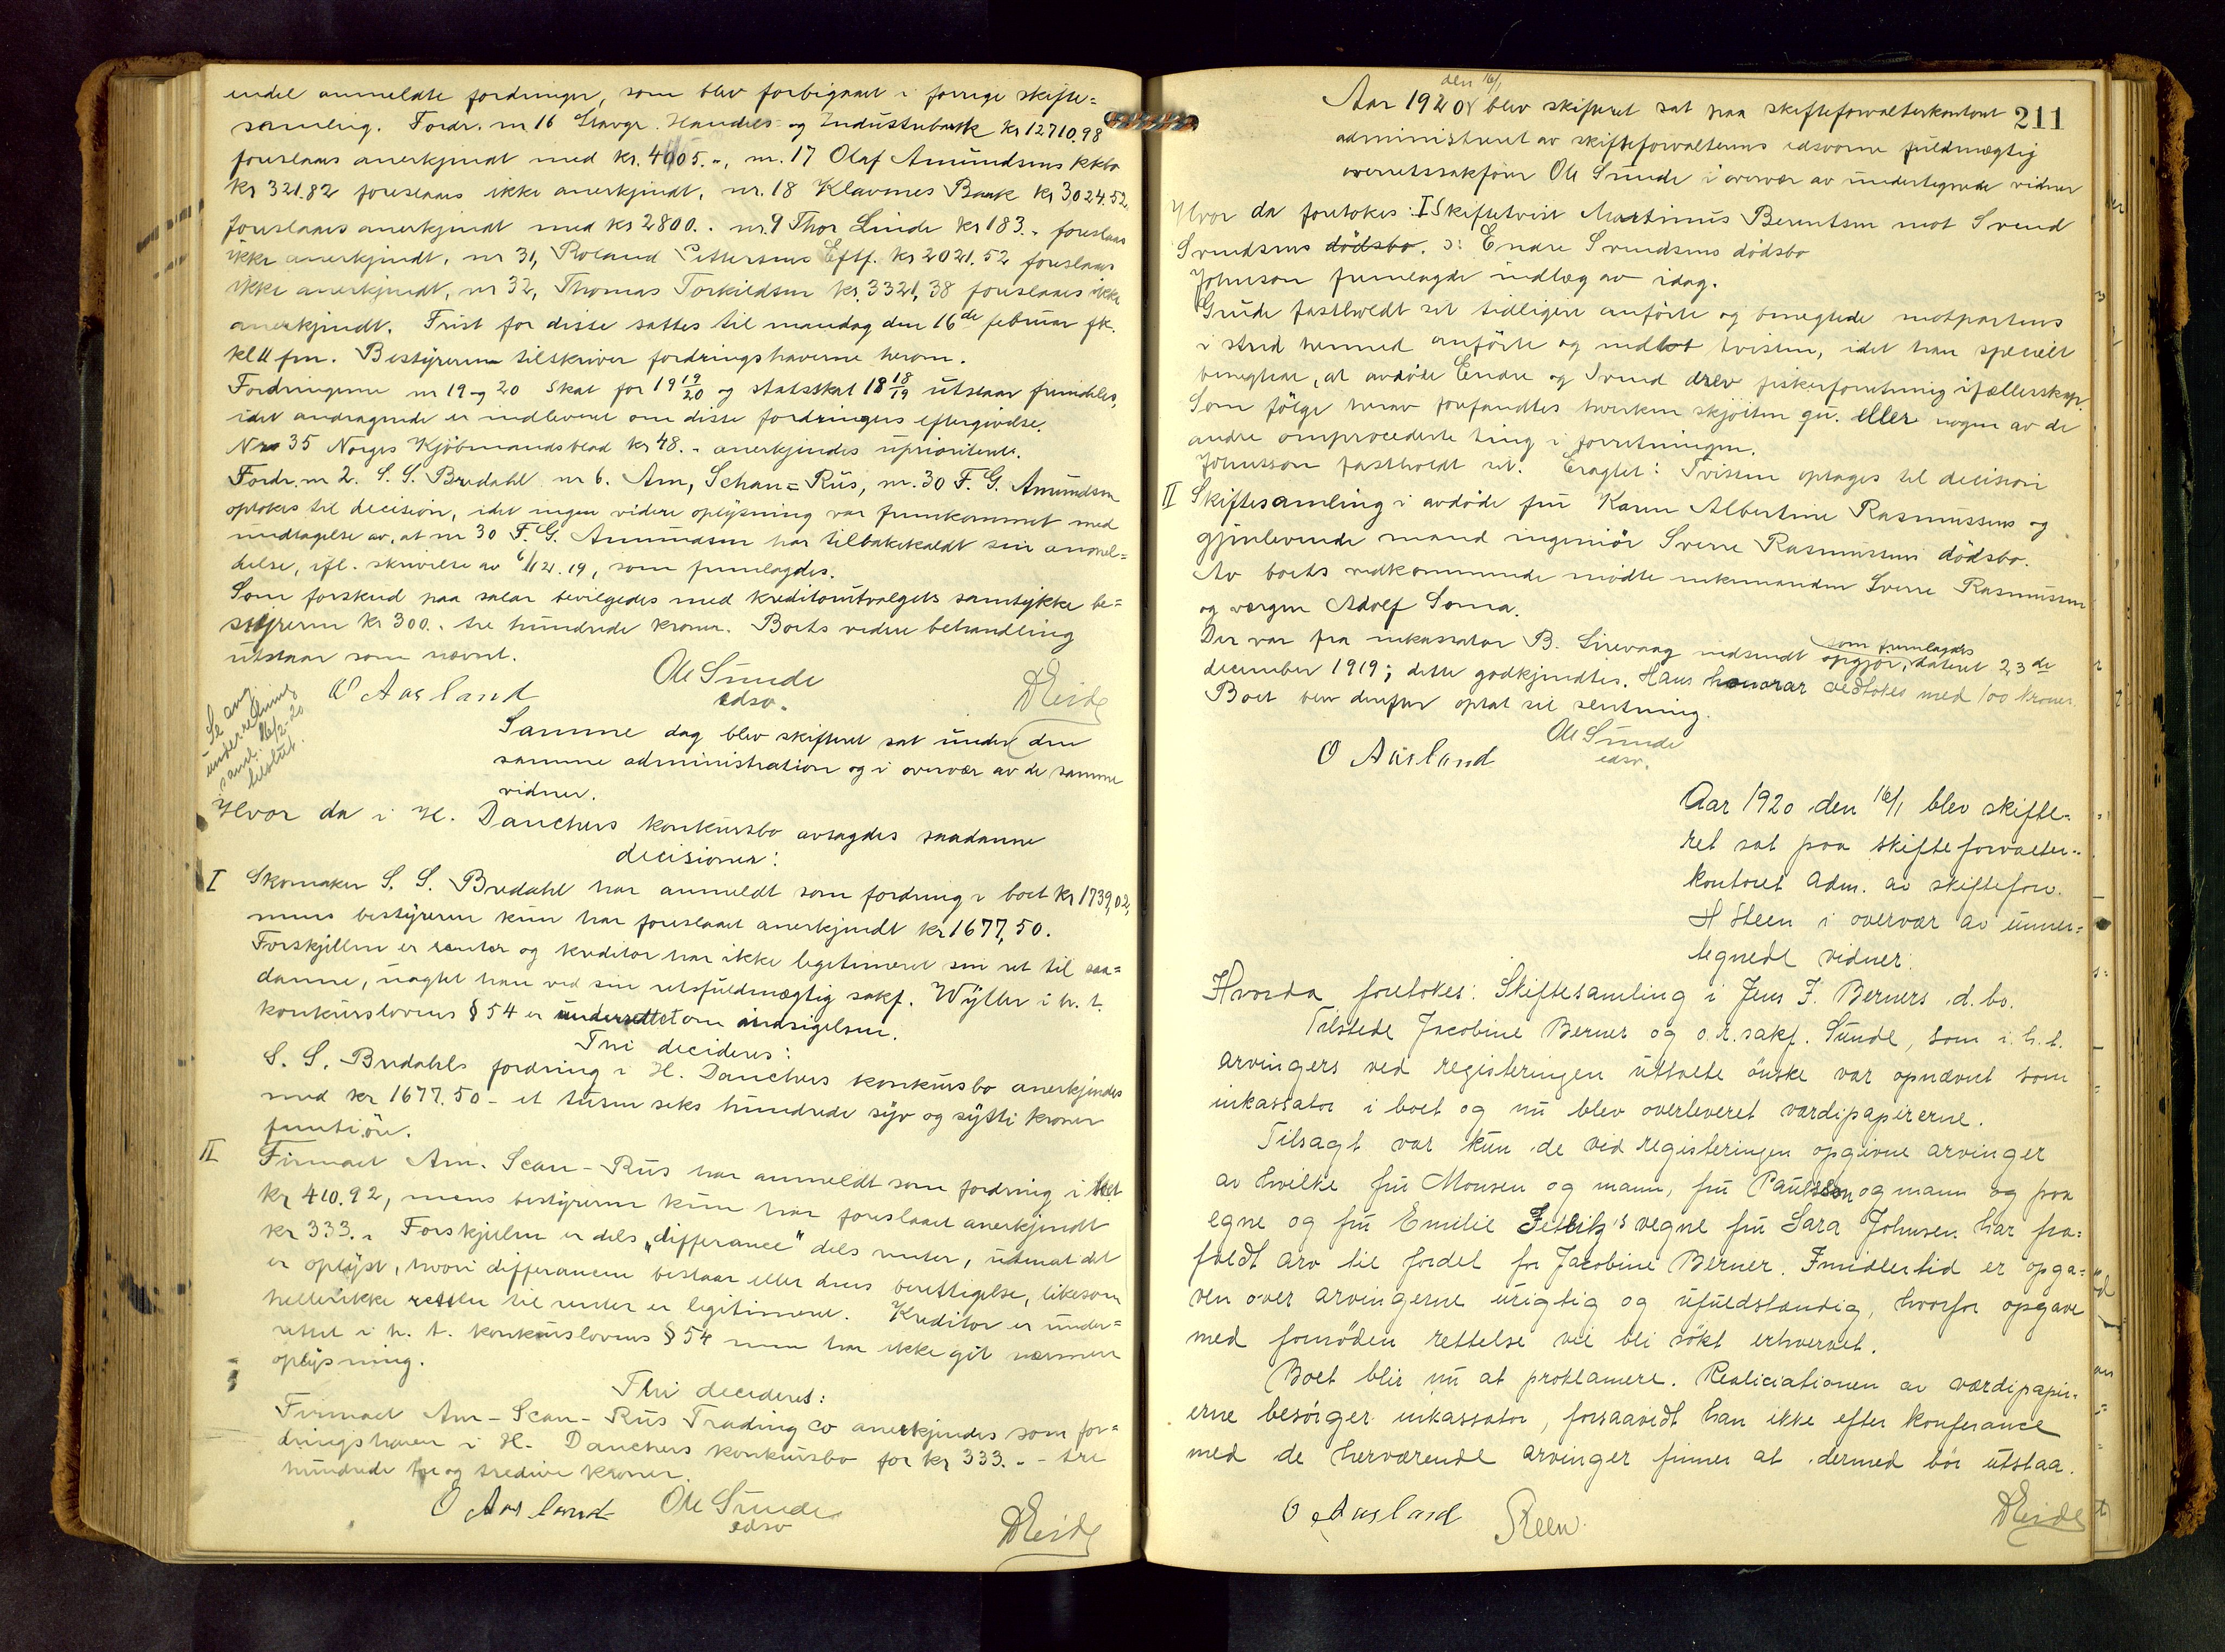 endel anmeldte fordringer, som blev forbigaaet i forrige skifte=
samling. Fordr. nr. 16 Stavgr. Handels- og Industribank kr 12710.98
foreslaaes anerkjendt med kr. 4005.-, nr. 17 Olaf Amundsens kkbo
kr 321.82 foreslaaes ikke anerkjendt, nr. 18 Klavenes Bank kr 3024.52,
foreslaaes anerkjendt med kr 2800.- nr. 9 Thor Linde kr 183.- foreslaaes
ikke anerkjendt, nr 31, Roland Pettersens Eftf. kr 2021.52 foreslaaes
ikke anerkjendt, nr 32, Thomas Torkildsen kr. 3321,38 foreslaaes ikke
anerkjendt. Frist for disse sattes til mandag den 16de februar fk.
kl 11 fm. Bestyreren tilskriver fordringshaverne herom.
Fordringerne nr 19 og 20 skat for 19 19/20 og statsskat 18 18/19 utstaar fremdeles,
idet andragende er indleveret om disse fordringers eftergivelse.
Nr 35 Norges Kjöbmandsblad kr 48.- anerkjendes uprioritert.
Fordr. nr 2. S. S. Bredahl nr 6. Am, Schan=Rus, nr. 30 F. G. Amundsen
optokes til decision, idet ingen videre oplysning var fremkommet med
undtagelse av, at nr 30 F. G. Amundsen har tilbakekaldt sin anmel=
delse, ifl. skrivelse av 6/12.19, som fremlagdes.
Som forskud paa salær bevilgedes med kreditorutvalgets samtykke be=
styreren kr 300.- tre hundrede kroner. Boets videre behandling
utstaar som nævnt.
O Aasland Ole Sunde DEide
edsv.
Se ang.
underretning
saml. 16/2-20
beslut.
Samme dag blev skifteret sat under den
samme administration og i overvær av de samme
vidner.
Hvor da i H. Danchers konkursbo avsagdes saadanne
decisioner:
I Skomaker S. S. Bredahl har anmeldt som fordring i boet kr 1739,02,
mens bestyreren kun har foreslaaet anerkjendt kr 1677,50.
Forskjellen er renter og kreditor har ikke legitimeret sin ret til saa=
danne, uagtet han ved sin retsfuldmægtig sakf. Wyller i h. t.
konkurslovens § 54 er underrettet om indsigelsen.
Thi decideres:
S. S. Bredahls fordring i H. Danchers konkursbo anerkjendes
med kr 1677.50 - et tusen seks hundrede syv og sytti kroner
femti öre.
II Firmaet Am. Scan-Rus har anmeldt som fordring i boet
kr 410.92, mens bestyreren kun har foreslaaet anerkjendt
kr 333.- Forskjellen er dels „differance" dels renter, uten at det
er oplyst, hvori differancen bestaar eller dens berettigelse, likesom
heller ikke retten til renter er legitimeret. Kreditor er under=
rettet i h. t. konkurslovens § 54 men har ikke git nærmere
oplysning.
Thi decideres:
Firmaet Am-Scan-Rus Trading Co anerkjendes som for=
dringshaver i H. Danchers konkursbo for kr 333.- - tre
hundrede tre og tredive kroner.
O Aasland Ole Sunde DEide
edsv
211
Aar 1920 den 16/1 blev skifteret sat paa skifteforvalterkontoret
administreret av skifteforvalterens edsvorne fuldmægtig
overretssakförer Ole Sunde i overvær av undertegnede vidner
Hvor da foretokes: I Skiftetvist Martinus Berentsen mot Svend
Svendsens dödsbo. ɔ: Endre Svendsens dödsbo
Johnson fremlagde indlæg av idag.
Grude fastholdt sit tidligere anförte og benegtede motpartens
i strid hermed anförte og indlot tvisten, idet han specielt
benegter, at avdöde Endre og Svend drev fiskeforretning ifællesskap.
Som fölge herav forefandtes hverken skjöiten qu. eller nogen av de
andre omprocederte ting i forretningen.
Johnsson fastholdt sit. Eragtet: Tvisten optages til decision
II Skiftesamling i avdöde fru Karen Albertine Rasmussens og
gjenlevende mand ingeniör Sverre Rasmussens dödsbo.
Av boets vedkommende mödte enkemanden Sverre Rasmussen
og vergen Adolf Soma.
Der var fra inkassator B. Sirevaag indsendt opgjör, som fremlagdes dateret 23de
december 1919; dette godkjendtes. Hans honorar vedtokes med 100 kroner.
Boet blev derefter optat til slutning.
O Aasland Ole Sunde
edsv.
Aar 1920 den 16/1 blev skifte-
ret sat paa skifteforvalter-
kontoret adm. av skifteforv.
H Steen i overvær av under=
tegnede vidner:
Hvorda foretokes: Skiftesamling i Jens F. Berners d. bo.
Tilstede Jacobine Berner og o.r.sakf. Sunde, som i. h. t.
arvingers ved registeringen uttalte önske var opnævnt som
inkassator i boet og nu blev overleveret værdipapirerne.
Tilsagt var kun de ved registeringen opgivne arvinger
av hvilke fru Monsen og mann, fru Paulsen og mann og paa
egne og fru Emilie 's vegne fru Sara Johnsen har fra=
faldt arv til fordel for Jacobine Berner. Imidlertid er opga=
ven over arvingerne urigtig og ufuldstændig, hvorfor opgave
med fornöden rettelse vil bli sökt erhvervet.
Boet blir nu at proklamere. Realiciationen av værdipapir-
erne besörger inkassator, forsaavidt han ikke efter konferance
med de herværende arvinger finner at dermed bör utstaa.
O Aasland Steen DEide